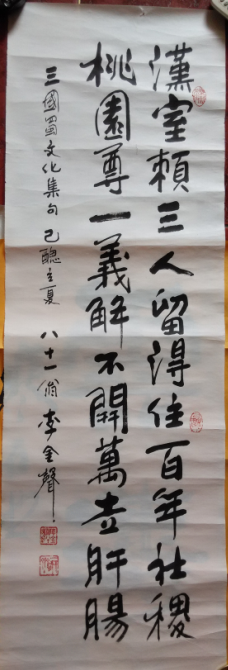 漢室賴三人留得住百年社稷
桃園尊一義解不開萬古肝腸
三國蜀文化集句 己醜立夏 八十一翁 李金聲